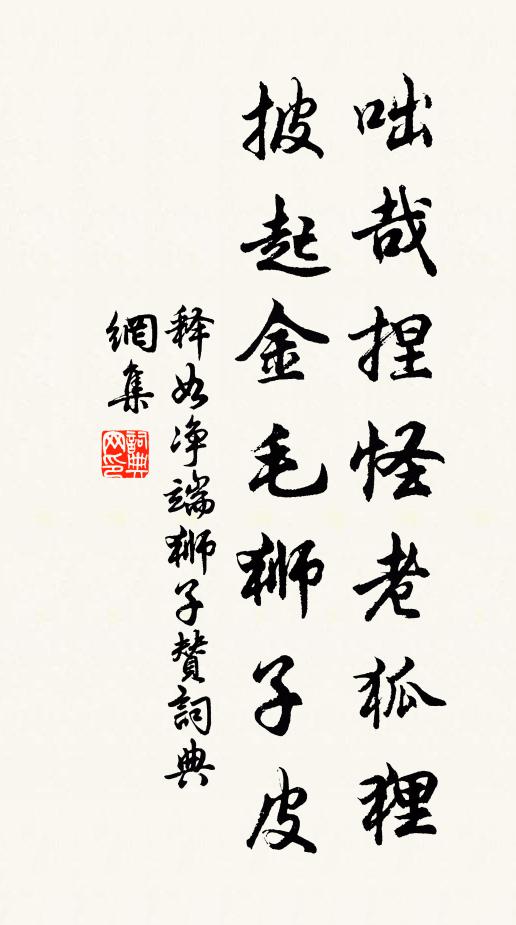 咄哉捏怪老狐狸
披起金毛狮子皮
释如净端狮子赞詞典
網集
詞典网印